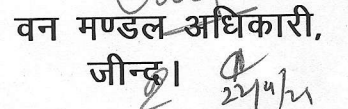 वन मण्डल अधिकारी,
जीन्द।
22/4/21